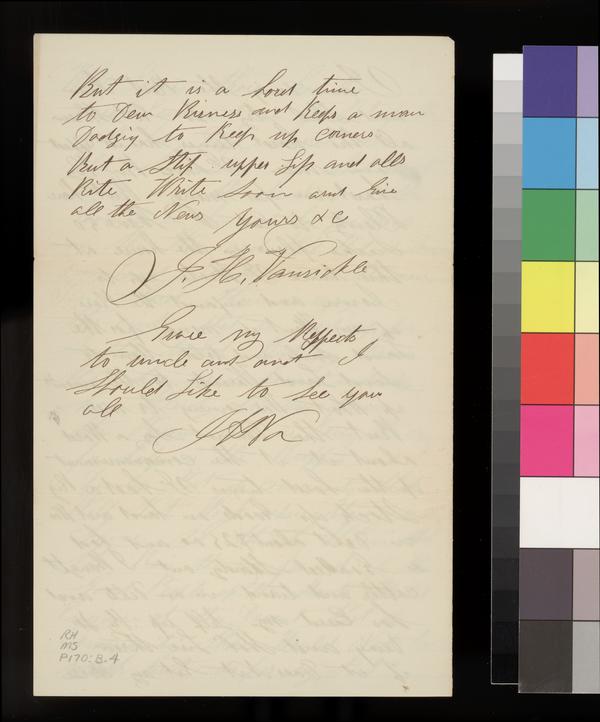 But it is a hard time
to Dew Bisness and Keeps a man
Dodgig to Keep up corners
But a Stif upper Lip and alls
Rite Write Soon and Give
all the News Yours &C
J. H. Vansickle
Give my Respects
to uncle and ant I
Should Like to See you
all
J H Va
RH
MS
P170:B.4